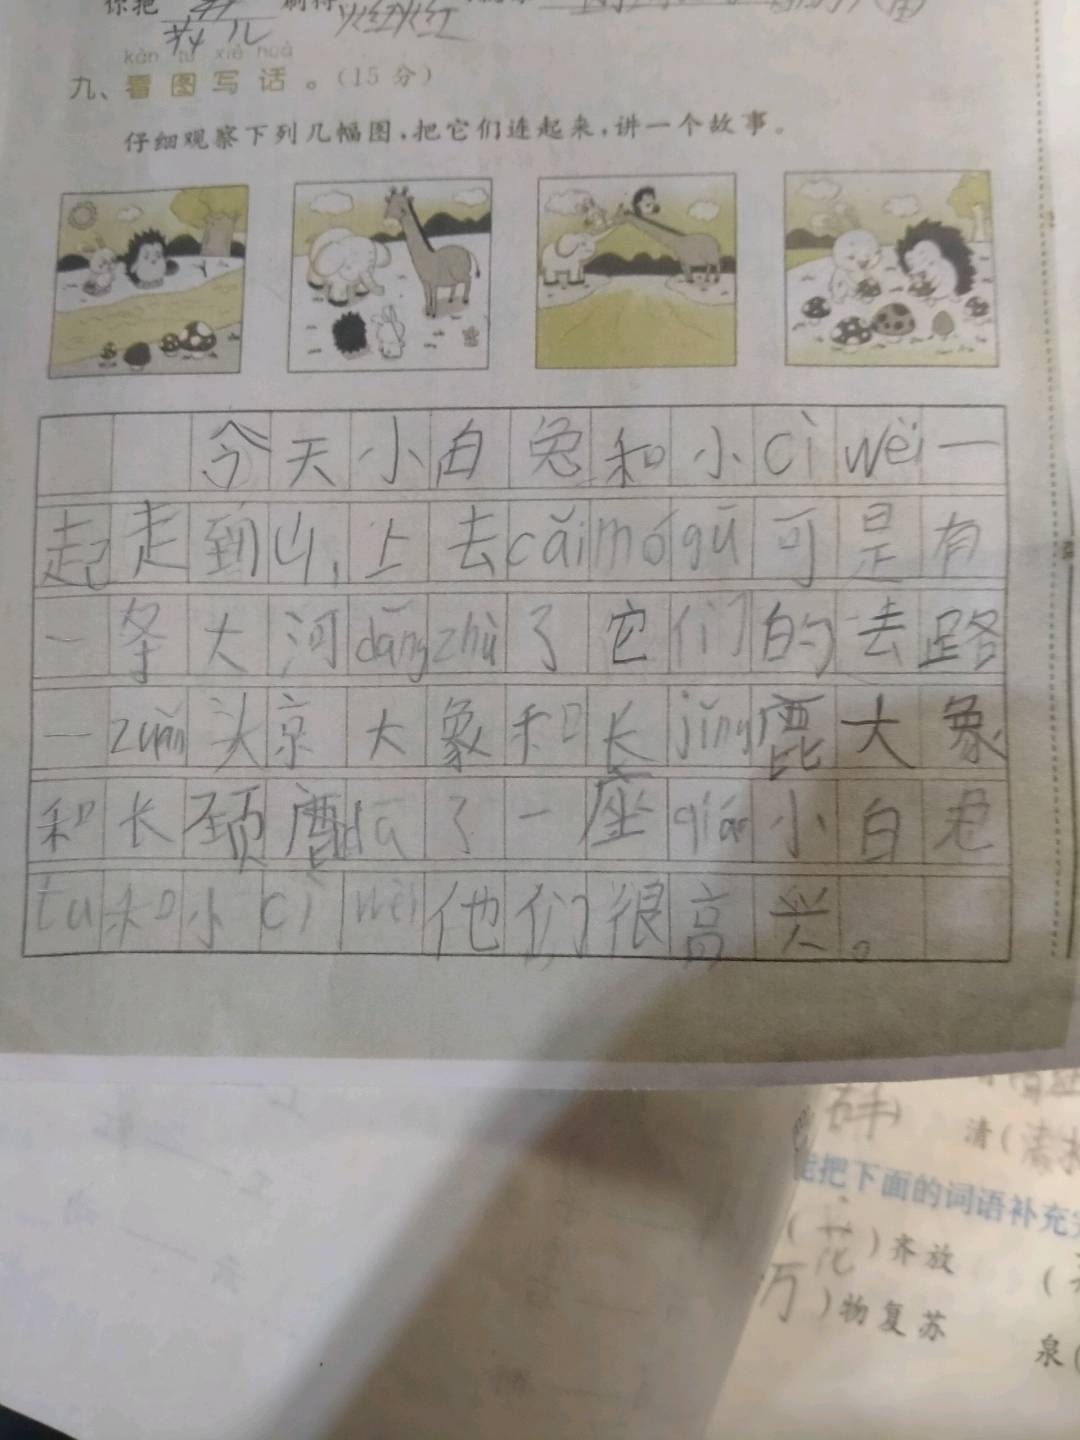 你把 刷得火红火红
艹 儿
kàn tú xiě huà
九、看图写话。(15分)
仔细观察下列几幅图,把它们连起来,讲一个故事。
今天小白兔和小cì wèi一
起走到山上去cǎi mó gū可是有
一条大河dǎng zhù了它们的去路
一zuǎn头京大象和长jǐng鹿大象
和长颈鹿dā了一座qiáo小白兔
tu和小cì wèi他们很高兴。
清(清
能把下面的词语补充完
(花)齐放
(万)物复苏
泉(